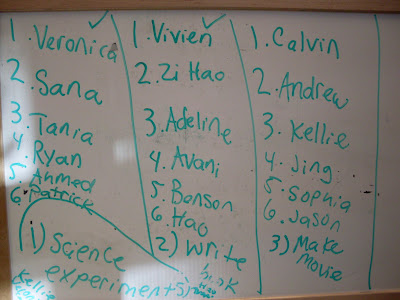 1. Veronica
2. Sana
3. Tania
4. Ryan
5. Ahmed
6. Patrick
1) Science
experiment
Kellie
1. Vivien
2. Zi Hao
3. Adeline
4. Avani
5. Benson
6. Hao
2) Write
book
5)
1. Calvin
2. Andrew
3. Kellie
4. Jing
5. Sophia
6. Jason
3) Make
Movie